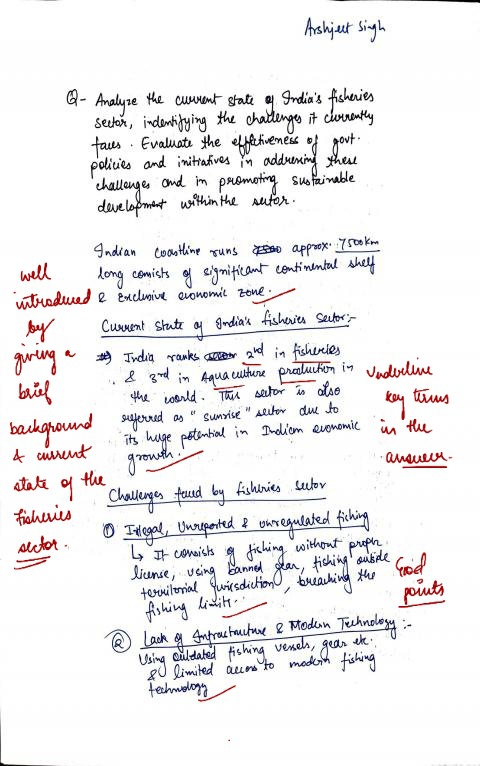 Arshjeet Singh
Q- Analyze the current state of India's fisheries
sector, indentifying the challenges it currently
faces. Evaluate the effectiveness of govt.
policies and initiatives in addressing these
challenges and in promoting sustainable
development within the sector.
Indian coastline runs approx. 7500km
long consists of significant continental shelf
& Exclusive economic zone.
well
introduced
by
giving a
brief
background
& current
state of the
fisheries
sector.
Current State of India's Fisheries Sector:-
India ranks 2nd in fisheries
& 3rd in Aquaculture production in
the world. This sector is also
referred as "sunrise" sector due to
its huge potential in Indian economic
growth.
Underline
key terms
in the
answer.
Challenges faced by fisheries sector
① Illegal, Unreported & unregulated fishing
↳ It consists of fishing without proper
license, using banned gear, fishing outside
territorial jurisdiction, breaching the
fishing limits.
Good
points
② Lack of Infrastructure & Modern Technology:-
Using outdated fishing vessels, gear etc.
& limited access to modern fishing
technology